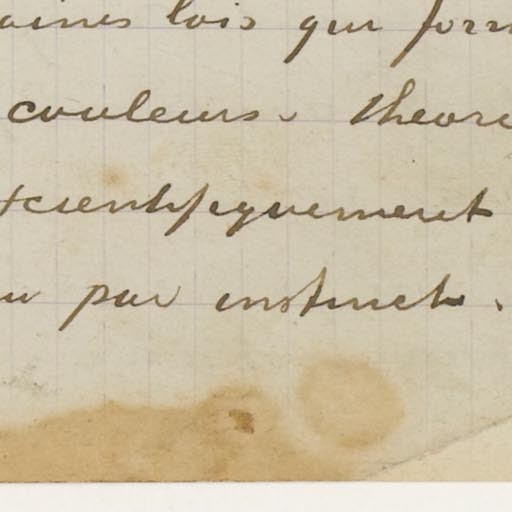 aines lois qui form
couleurs. theori
scientifiquement
ou par instinct.